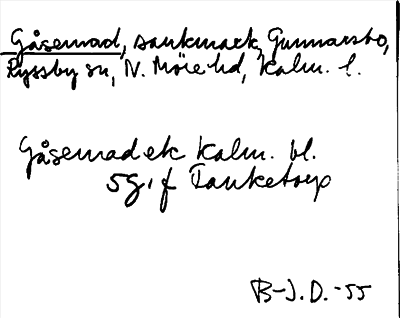 Gåsemad, sankmark, Gunnarsbo,
Ryssby sn, N. Möre hd, Kalm. l.
Gåsemad ek Kalm. bl.
5g, f Tanketorp
B-J.D. -55